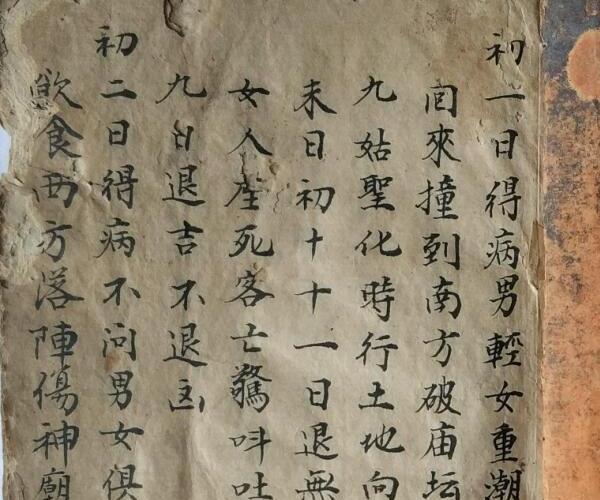 初一日得病男輕女重潮
囘來撞到南方破庙坛
九姑聖化時行土地向
未日初十十一日退無
女人座死客亡驚呌吐
九日退吉不退凶
初二日得病不问男女俱
飲食西方落陣傷神廟